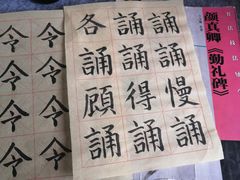 令令
令令
令令
令令
各誦誦
誦誦誦
顧得慢
誦誦誦
颜真卿《勤礼碑》